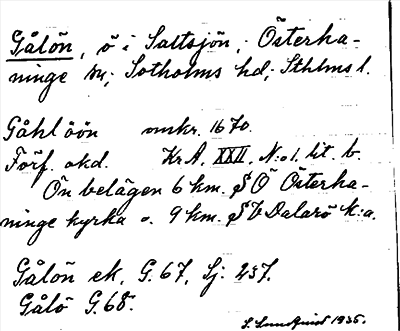 Gålön, ö i Saltsjön, Österha-
ninge sn; Sotholms hd; Sthlms l.
Gåhl öön omkr. 1670.
Förf. okd. Kr A, XXII, N:o 1. lit. b.
Ön belägen 6 km. SÖ Österha-
ninge kyrka o. 9 km. SV Dalarö k:a.
Gålön ek. G. 67, Sj: 237.
Gålö G. 68.
S. Lundqvist 1935.